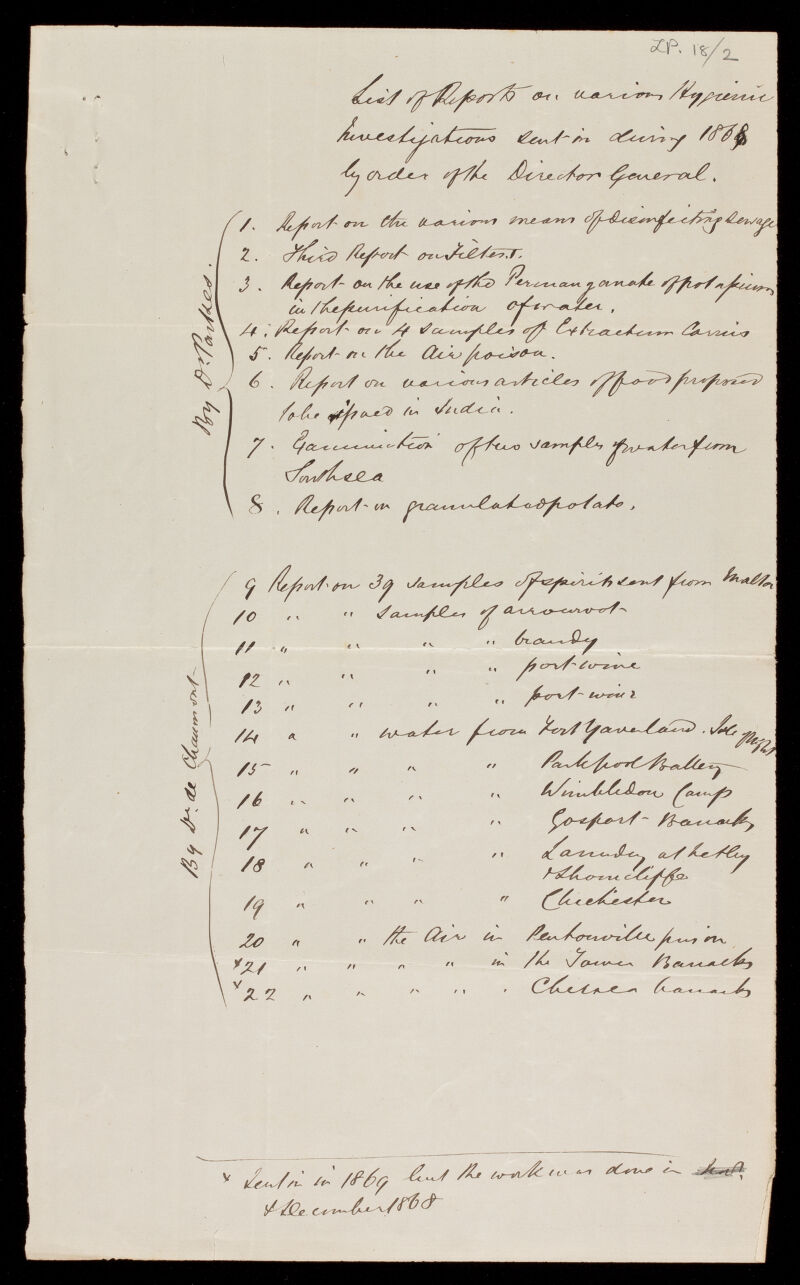 LP. 18/2
List of Reports on various Hygienic
Investigations sent in during 1868
by order of the Director General.
By Dr. Parkes.
1. Report on the various means of disinfecting sewage
2. Third Report on Filters.
3. Report on the use of the Permanganate of potassium
in the purification of water.
4. Report on 4 samples of Extractum Carnis
5. Report on the Air poison.
6. Report on various articles of food proposed
to be issued in India.
7. Examination of two samples of water from
Southsea
8. Report on granulated potato.
By Dr. de Chaumont
9 Report on 39 samples of spirit sent from Malta
10 " " samples of arrowroot
11 " " " " brandy
12 " " " " port-wine
13 " " " " port-wine
14 " " water from Fort Yaverland. Isle of Wight
15 " " " " Battery
16 " " " " Wimbledon Camp
17 " " " " Gosport Barracks
18 " " " " Laundry at Netley
& Shorncliffe
19 " " " " Chichester
20 " " the Air in Pentonville prison
x 21 " " " " in the Tower Barracks
x 22 " " " " " Chelsea barracks
x Sent in in 1869 but the work was done in
& December 1868